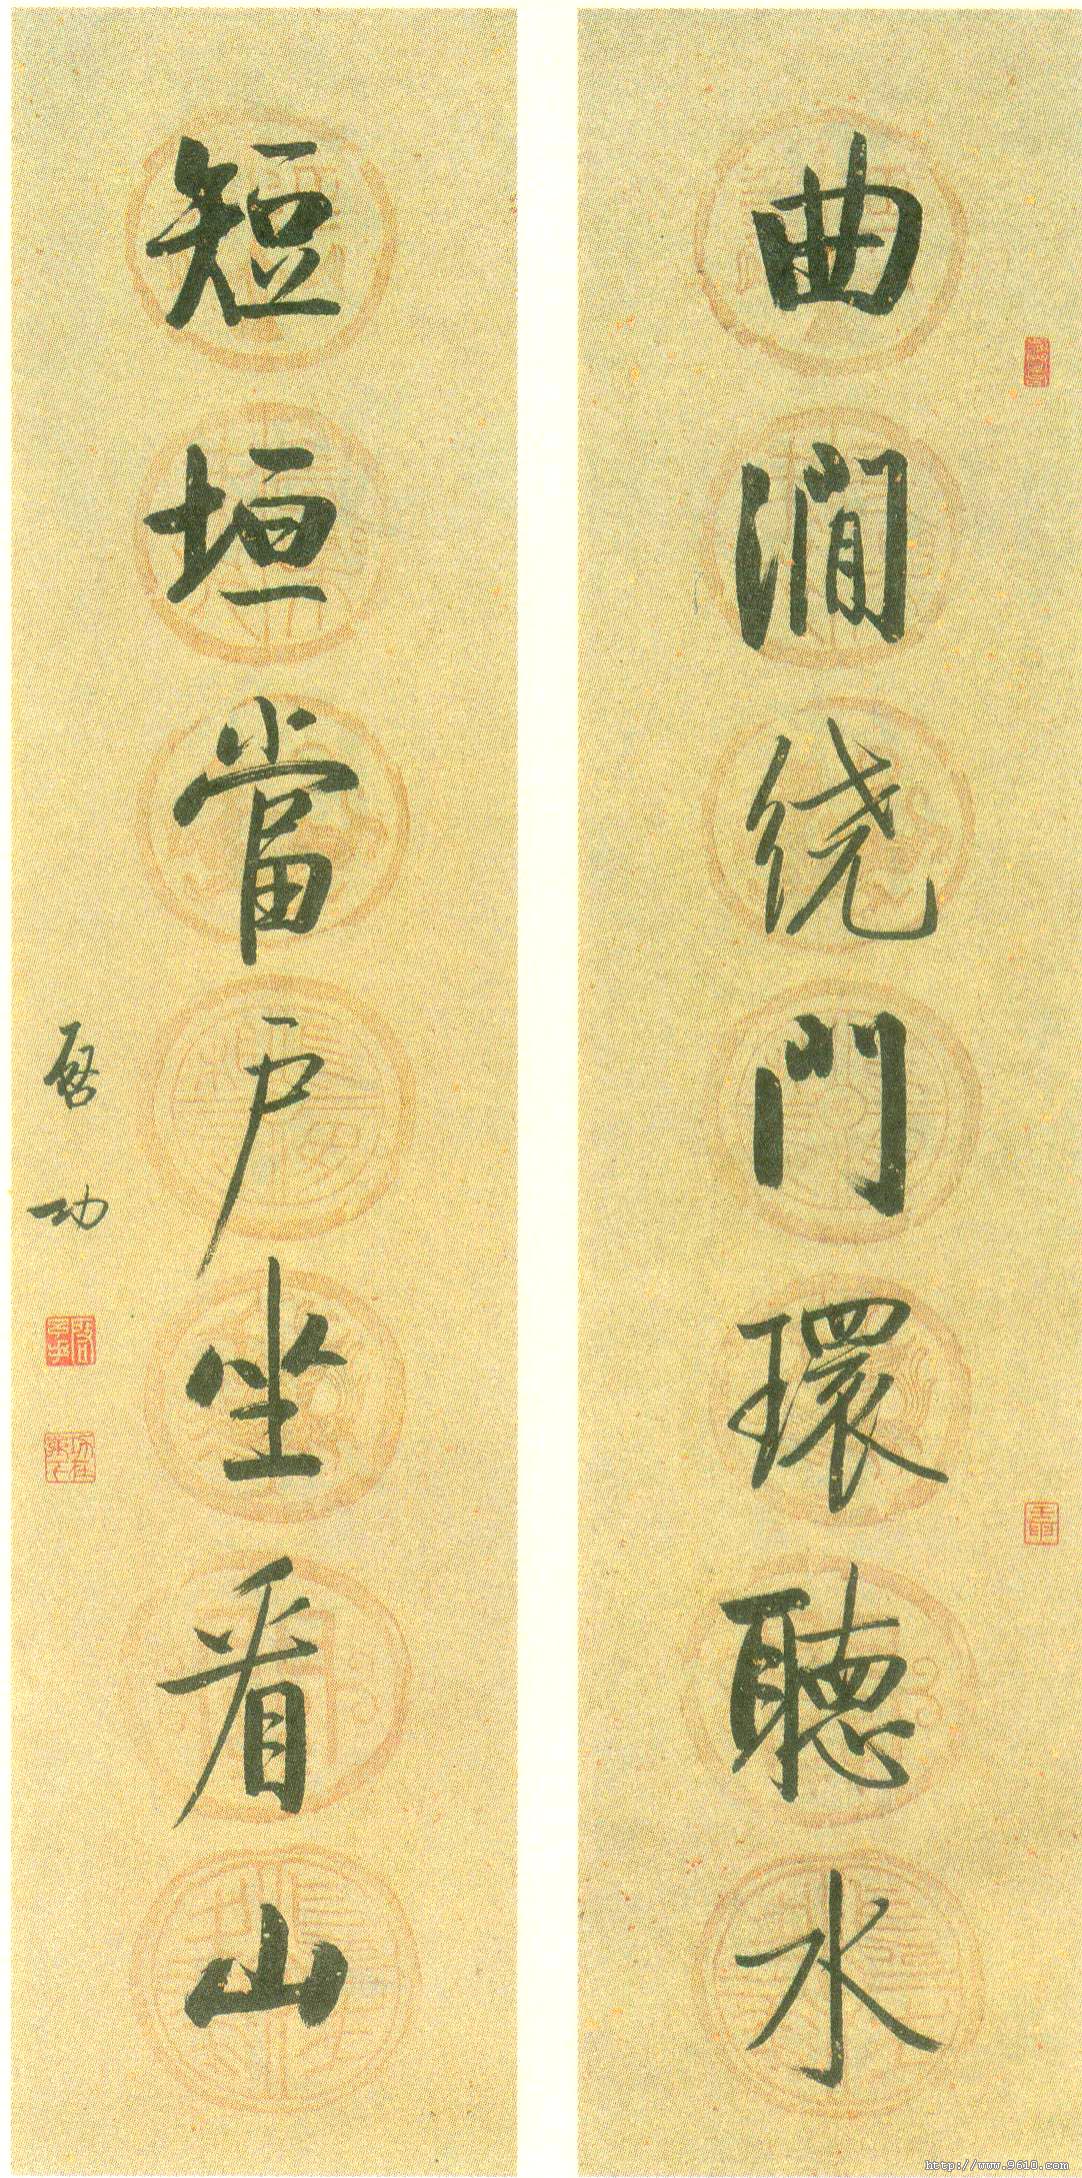 曲澗绕門環聽水
短垣當戶坐看山
启功
http://www.9610.com